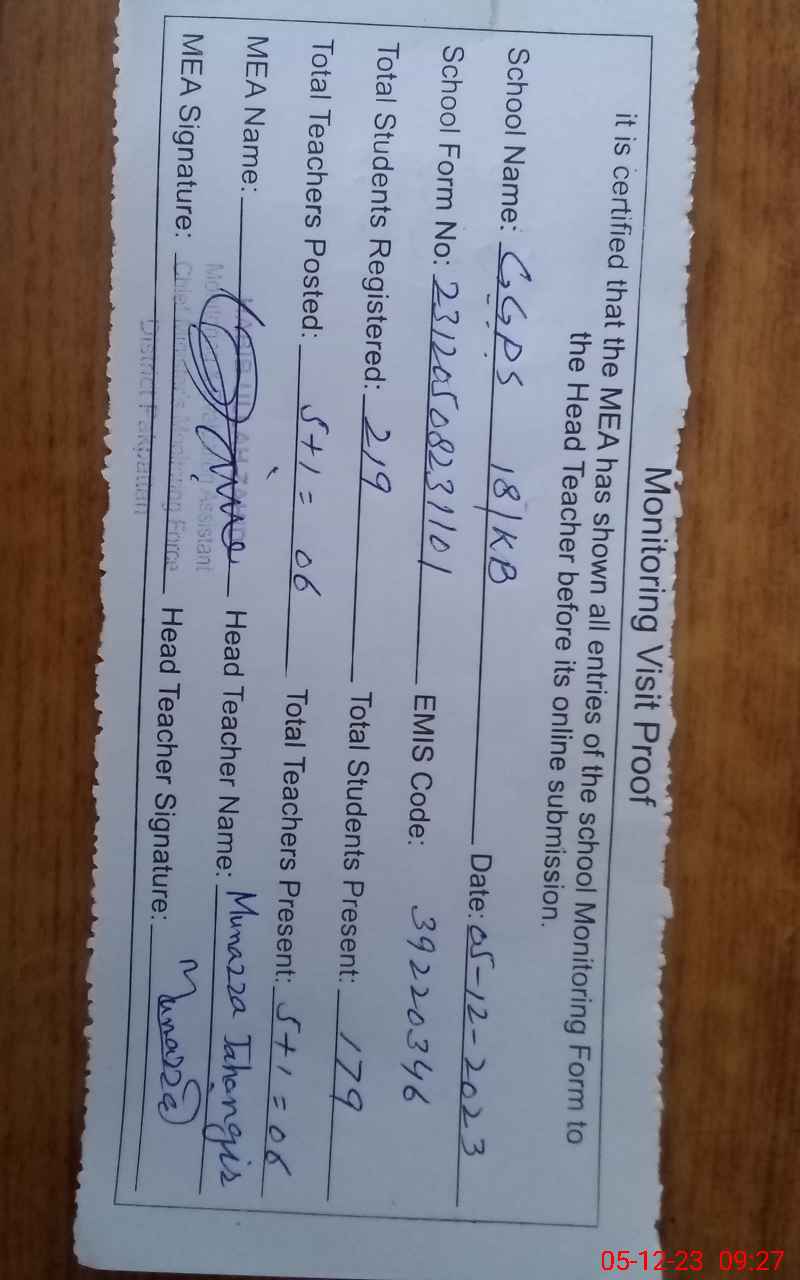 Monitoring Visit Proof
it is certified that the MEA has shown all entries of the school Monitoring Form to
the Head Teacher before its online submission.
School Name: GGPS 18/KB Date: 05-12-2023
School Form No: 23120508231101 EMIS Code: 39220346
Total Students Registered: 219 Total Students Present: 179
Total Teachers Posted: 5+1 = 06 Total Teachers Present: 5+1 = 06
MEA Name: Head Teacher Name: Munazza Jahangir
MEA Signature: Head Teacher Signature: Munazza
Assistant
Chief Minister's Monitoring Force
District Pakpattan
05-12-23 09:27